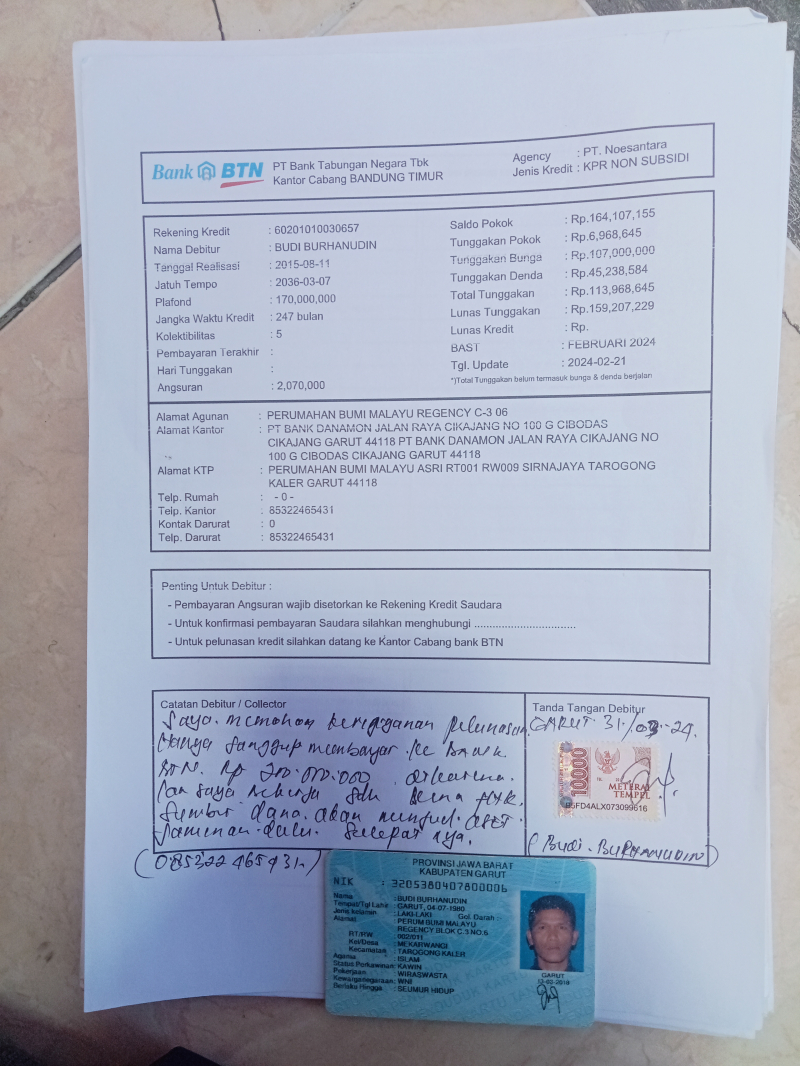 Bank BTN
PT Bank Tabungan Negara Tbk
Kantor Cabang BANDUNG TIMUR
Agency : PT. Noesantara
Jenis Kredit : KPR NON SUBSIDI
Rekening Kredit : 60201010030657
Nama Debitur : BUDI BURHANUDIN
Tanggal Realisasi : 2015-08-11
Jatuh Tempo : 2036-03-07
Plafond : 170,000,000
Jangka Waktu Kredit : 247 bulan
Kolektibilitas : 5
Pembayaran Terakhir :
Hari Tunggakan :
Angsuran : 2,070,000
Saldo Pokok : Rp.164,107,155
Tunggakan Pokok : Rp.6,968,645
Tunggakan Bunga : Rp.107,000,000
Tunggakan Denda : Rp.45,238,584
Total Tunggakan : Rp.113,968,645
Lunas Tunggakan : Rp.159,207,229
Lunas Kredit : Rp.
BAST : FEBRUARI 2024
Tgl. Update : 2024-02-21
*)Total Tunggakan belum termasuk bunga & denda berjalan
Alamat Agunan : PERUMAHAN BUMI MALAYU REGENCY C-3 06
Alamat Kantor : PT BANK DANAMON JALAN RAYA CIKAJANG NO 100 G CIBODAS
CIKAJANG GARUT 44118 PT BANK DANAMON JALAN RAYA CIKAJANG NO
100 G CIBODAS CIKAJANG GARUT 44118
Alamat KTP : PERUMAHAN BUMI MALAYU ASRI RT001 RW009 SIRNAJAYA TAROGONG
KALER GARUT 44118
Telp. Rumah : - 0 -
Telp. Kantor : 85322465431
Kontak Darurat : 0
Telp. Darurat : 85322465431
Penting Untuk Debitur :
- Pembayaran Angsuran wajib disetorkan ke Rekening Kredit Saudara
- Untuk konfirmasi pembayaran Saudara silahkan menghubungi ..................................
- Untuk pelunasan kredit silahkan datang ke Kantor Cabang bank BTN
Catatan Debitur / Collector
Saya. memohon keringanan pelunasan.
Hanya sanggup membayar ke BANK
BTN. Rp 200.000.000 dikarena.
kan saya bekerja sdh kena PHK.
Sumber dana akan menjual ASET
Jaminan dulu. secepat nya.
(085322465431)
Tanda Tangan Debitur
GARUT 31/03-24.
10000
METERAI
TEMPEL
B5FD4ALX073099616
(Budi. BURHANUDIN)
PROVINSI JAWA BARAT
KABUPATEN GARUT
NIK : 3205380407800006
Nama : BUDI BURHANUDIN
Tempat/Tgl Lahir : GARUT, 04-07-1980
Jenis kelamin : LAKI-LAKI Gol. Darah
Alamat : PERUM BUMI MALAYU
REGENCY BLOK C.3 NO.6
RT/RW : 002/011
Kel/Desa : MEKARWANGI
Kecamatan : TAROGONG KALER
Agama : ISLAM
Status Perkawinan : KAWIN
Pekerjaan : WIRASWASTA
Kewarganegaraan : WNI
Berlaku Hingga : SEUMUR HIDUP
GARUT